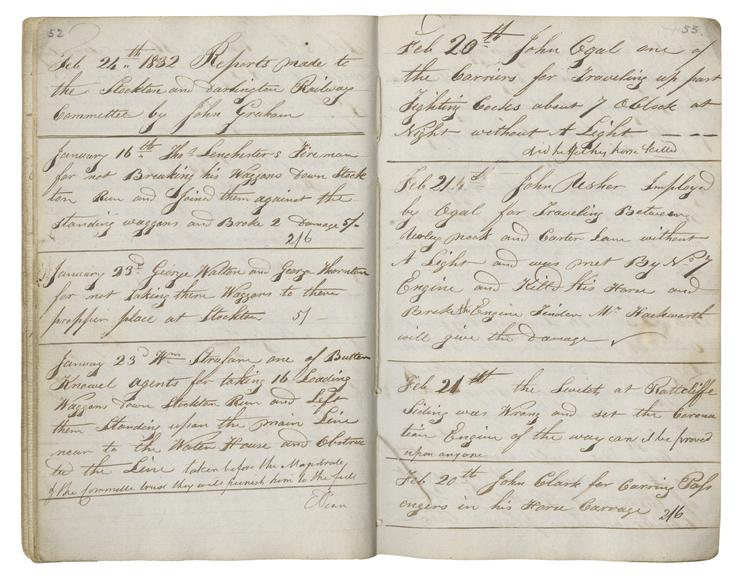 52
Feb 24th 1832 Reports made to
the Stockton and Darlington Railway
Committee by John Graham
January 16th Thos Lenchester's Fireman
for not Breaking his Waggons down Stock
ton Run and Joined them against the
standing waggons and Broke 2 Damage 5/-
2/6
January 23d George Walton and George Thornton
for not taking there Waggons to there
propper place at Stockton 5/-
January 23d Wm one of Butter
Knowel agents for taking 16 Loading
Waggons down Stockton Run and Left
them Standing upon the main Line
near to the Water House and Obstruc
ted the Line taken before the Magistrate
& the Committee trust they will punish him to the full
53
Feb 20th John Ogal one of
the Carriers for Traveling up past
Fighting Cocks about 7 O Clock at
Night without A Light
did he get his horse killed
Feb 21st John Usher Imployed
by Ogal for Traveling Between
and Carter Lane without
A Light and was met By No 7
Engine and Kill'd His Horse and
Broke the Engine Tinder Mr Hackworth
will give the damage
Feb 21th the Switch at Rattcliffe
Siding was Wrang and set the Corona
tion Engine of the way can it be proved
upon anyone
Feb 20th John Clark for Carring Pass
engers in his Horse Carrage 2/6